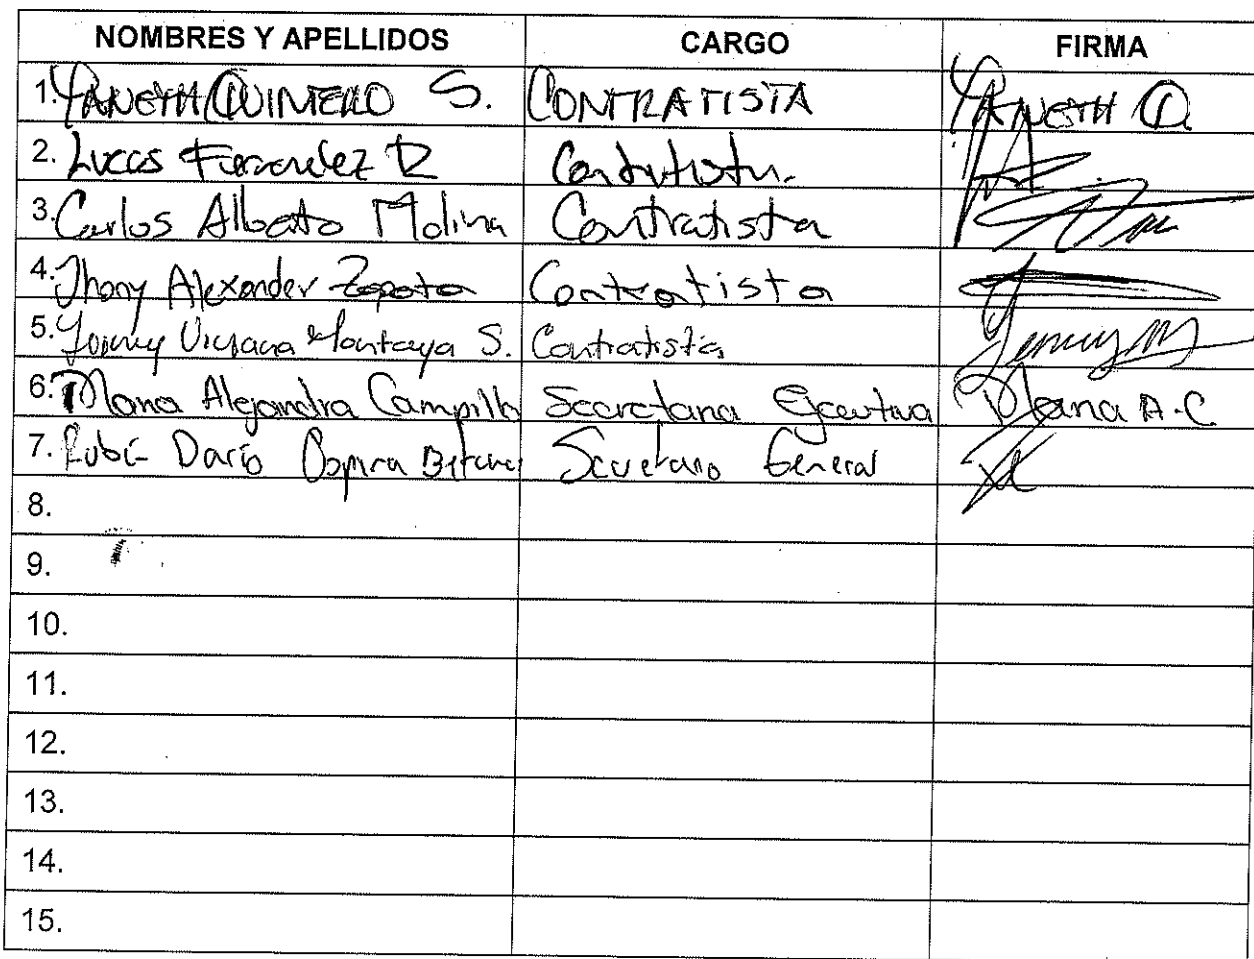 NOMBRES Y APELLIDOS CARGO FIRMA
1. YANETH QUINTERO S. CONTRATISTA YANETH Q.
2. Lucas Fernandez R Contratista
3. Carlos Alberto Molina Contratista
4. Jhony Alexander Zapata Contratista
5. Yenny Viviana Montoya S. Contratista Yenny M
6. Alejandra Campillo Secretaria Ejecutiva A.C
7. Rubén Darío Ospina Secretario General
8.
9.
10.
11.
12.
13.
14.
15.